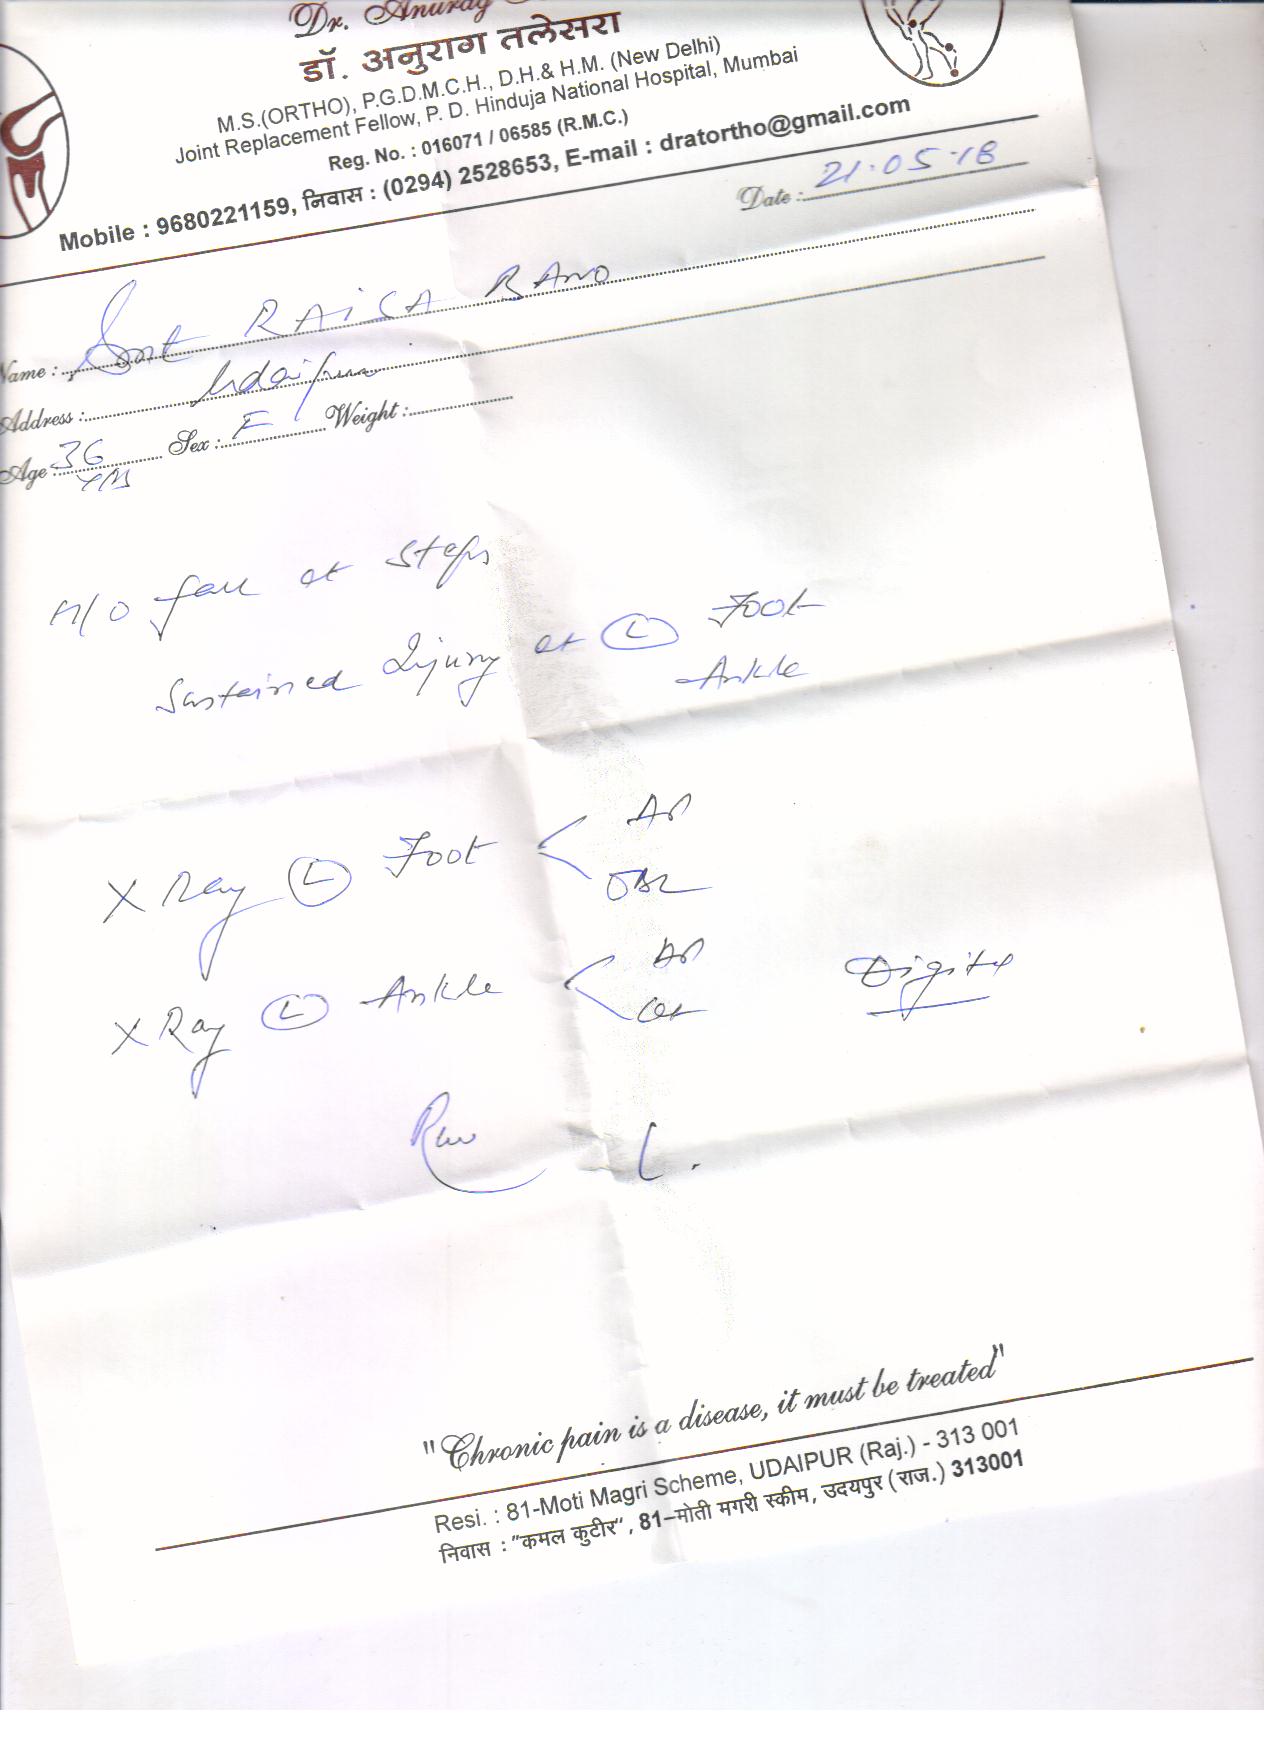 Dr. Anurag
डॉ. अनुराग तलेसरा
M.S.(ORTHO), P.G.D.M.C.H., D.H.& H.M. (New Delhi)
Joint Replacement Fellow, P. D. Hinduja National Hospital, Mumbai
Reg. No. : 016071 / 06585 (R.M.C.)
Mobile : 9680221159, निवास : (0294) 2528653, E-mail : dratortho@gmail.com
Date : 21.05.18
Name : Smt RAISA BANO
Address : Udaipur
Age : 36 Yrs Sex : F Weight :
H/O fall at steps
Sustained Injury at (L) Foot
Ankle
X Ray (L) Foot < AP
OBL
X Ray (L) Ankle < AP
Lat
Digital
"Chronic pain is a disease, it must be treated"
Resi. : 81-Moti Magri Scheme, UDAIPUR (Raj.) - 313 001
निवास : "कमल कुटीर", 81–मोती मगरी स्कीम, उदयपुर (राज.) 313001